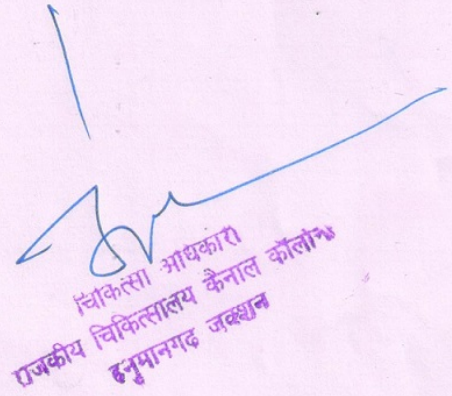 चिकित्सा अधिकारी
राजकीय चिकित्सालय कैनाल कॉलोनी
हनुमानगढ जंक्शन